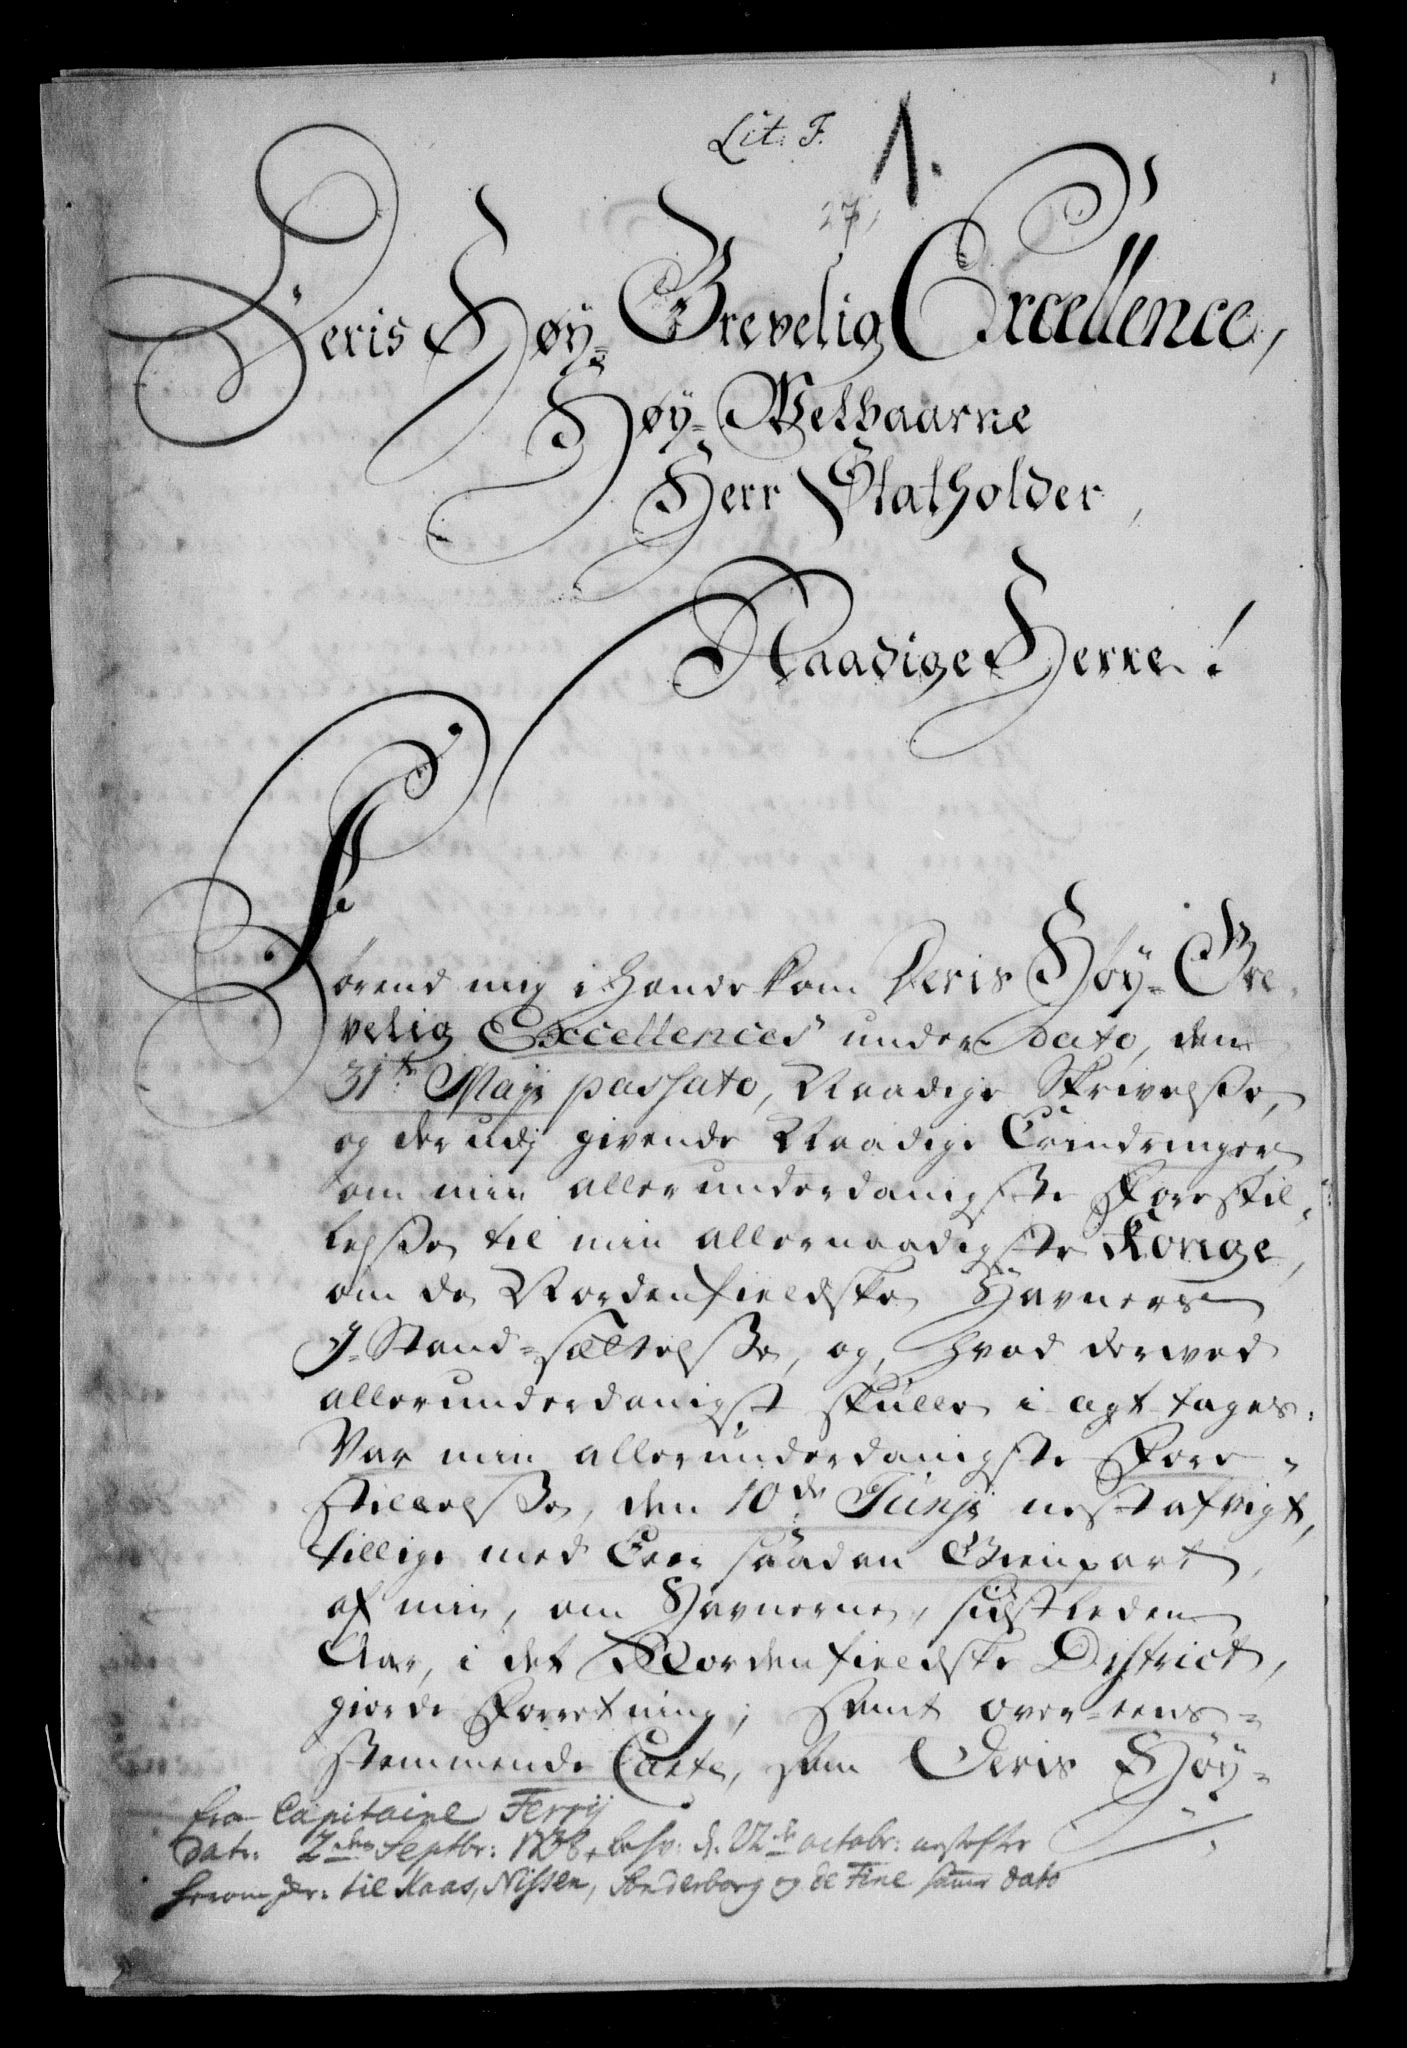 Lit: F.
1.
27,
Deris Høy-Grevelig Excellence,
Høy-Velbaarne
Herr Statholder,
Naadige Herre!
Førend mig i Hænde kom Deris Høy-Gre-
velig Excellences under Dato, den
31te Maji passato, Naadige Skrivelsse,
og der udj givende Naadige Erindringer
om min allerunderdanigste Forestil-
lelsse til min allernaadigste Konge,
om de Nordenfieldske Havners
J-Stand-sættelsse, og, hvad derved
allerunderdanigst skulle i agt tages:
Var min allerunderdanigste Fore-
stillelsse, den 10de Junji nest afvigt,
tillige med Een saadan Gienpart,
af min, om Havnerne, sidstleden
Aar, i det Nordenfieldske District,
giorde Forretning; samt over-eens-
stemmende Carte, som Deris Høy-
fra Capitaine Ferrij
Dat: 2den Septbr: 1738, besv: d. 22de octobr: nestefter
til Kaas, Nissen, Sønderborg og de Fine samme dato